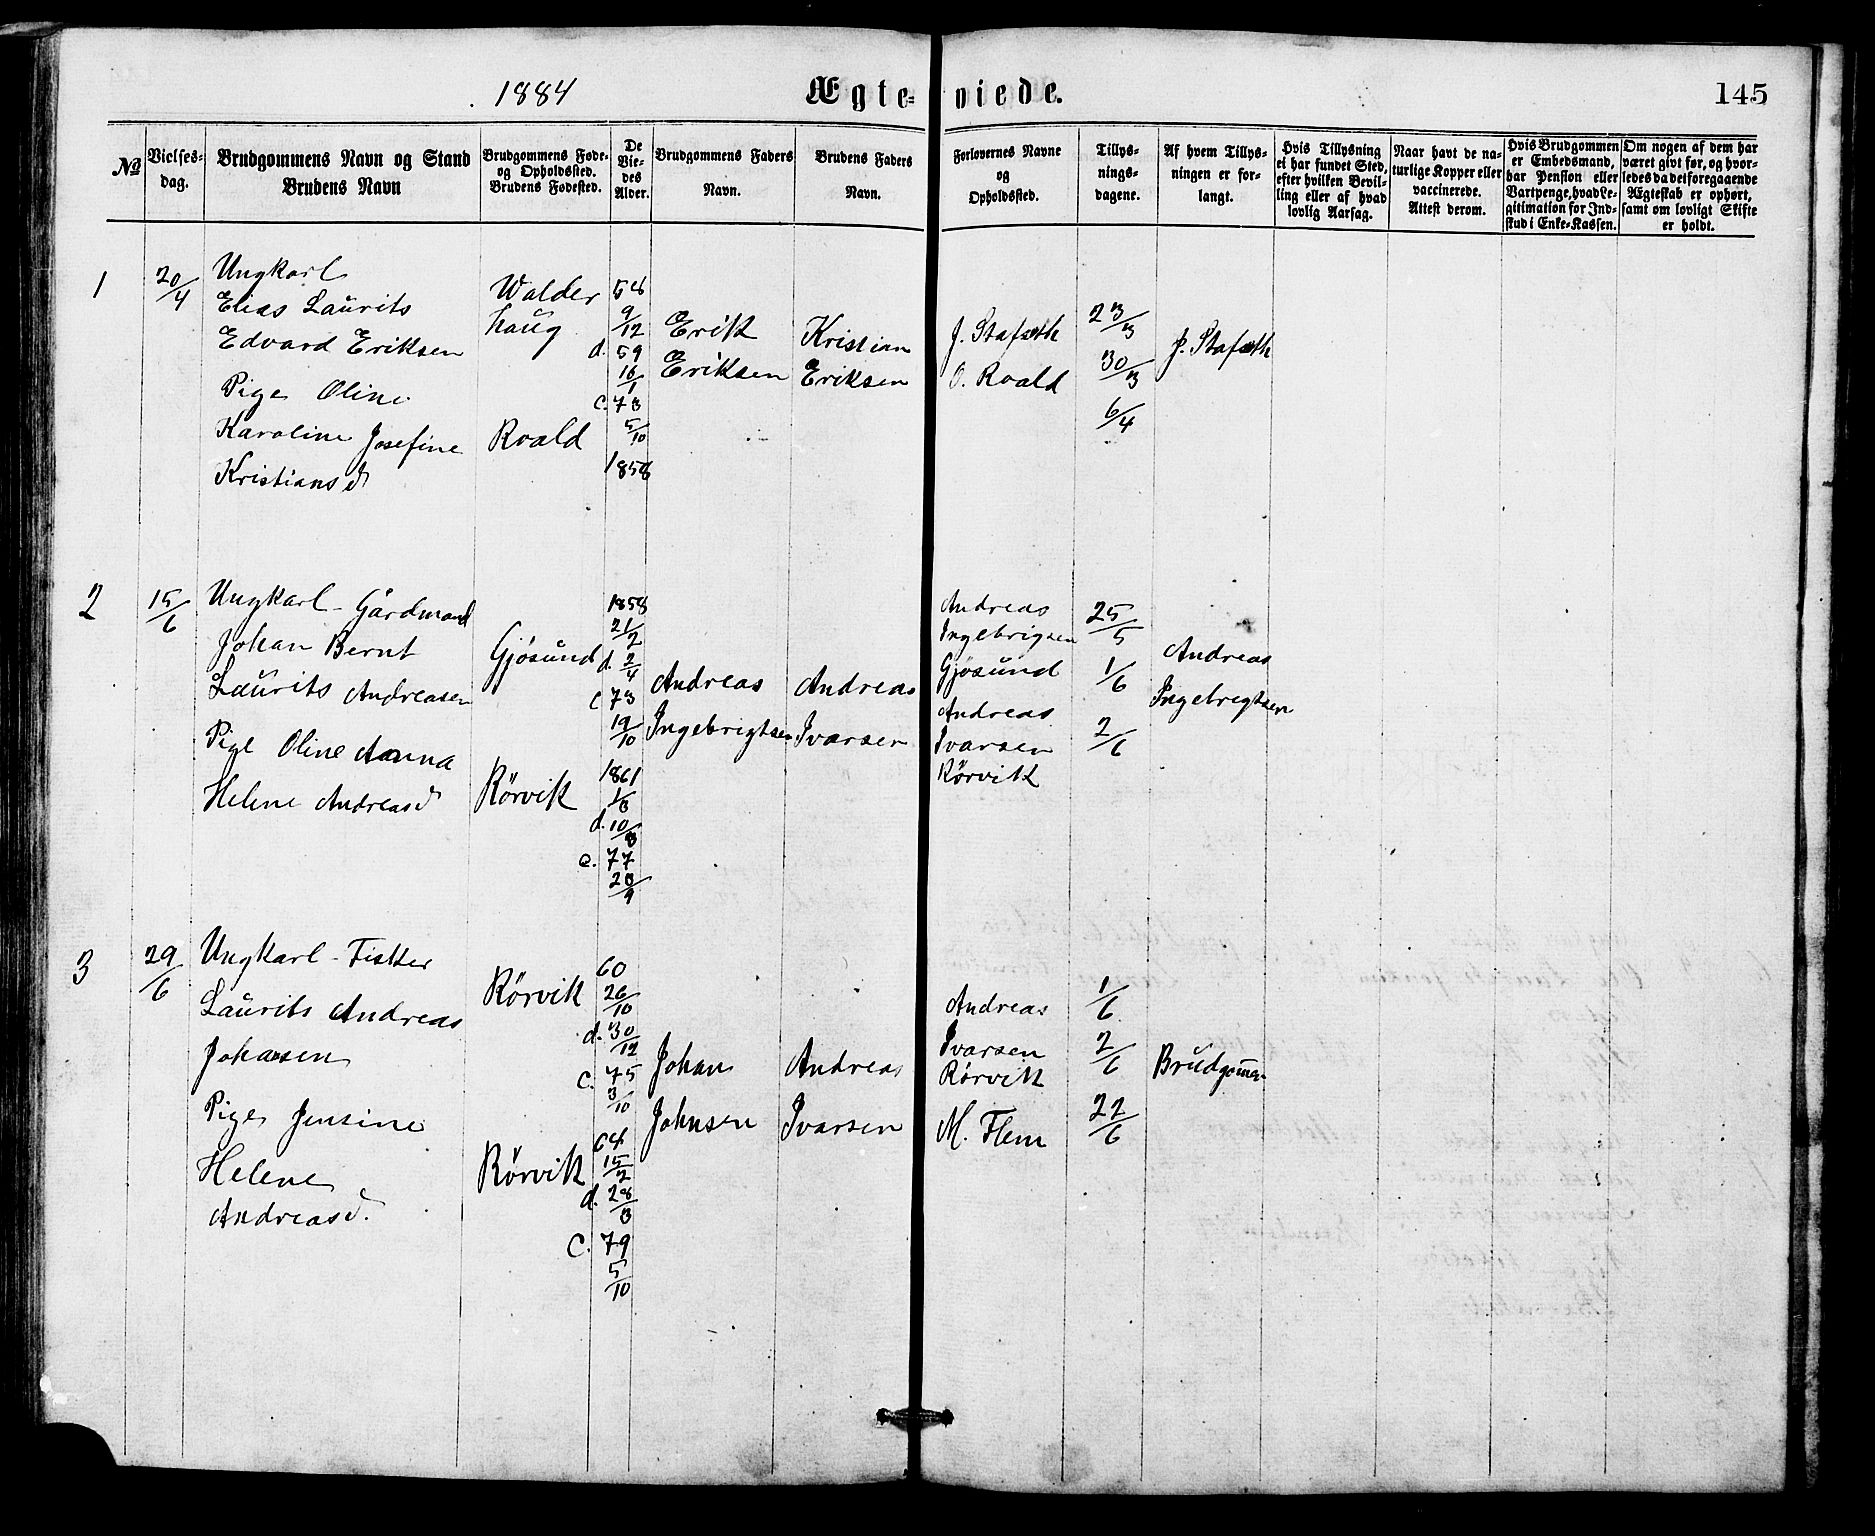 1884
Ægte-
viede.
145
No
Vielses-
dag.
Brudgommens Navn og Stand
Brudens Navn
Brudgommens Føde-
og Opholdssted.
Brudens Fødested.
De
Vie-
des
Alder.
Brudgommens Faders
Navn.
Brudens Faders
Navn.
Forlovernes Navne
og
Opholdssted.
Tillys-
nings-
dagene.
Af hvem Tillys-
ningen er for-
langt.
Hvis Tillysning
ei har fundet Sted,
efter hvilken Bevil-
ling eller af hvad
lovlig Aarsag.
Naar havt de na-
turlige Kopper eller
vaccinerede.
Attest derom.
Hvis Brudgommen
er Embedsmand,
har Pension eller
Vartpenge, hvad Le-
gitimation for Ind-
skud i Enke-Kassen.
Om nogen af dem har
været givt før, og hvor-
ledes da det foregaaende
Ægteskab er ophørt,
samt om lovligt Skifte
er holdt.
1
20/4
Ungkarl
Elias Laurits
Edvard Eriksen
Pige Oline
Karoline Josefine
Kristiansd
Walder
haug
Roald
54
9/12
d. 59
16/1
c. 73
5/10
1858
Erik
Eriksen
Kristian
Eriksen
J. Stafseth
O. Roald
23/3
30/3
6/4
J. Stafseth
2
15/6
Ungkarl - Gårdmand
Johan Bernt
Laurits Andreasen
Pige Oline Anna
Helene Andreasd
Gjøsund
Rörvik
1858
21/2
d. 2/4
c 73
19/10
1861
1/3
d. 10/3
c. 77
23/9
Andreas
Ingebrigtsen
Andreas
Ivarsen
Andreas
Ingebrigsen
Gjøsund
Andreas
Ivarsen
Rörvik
25/5
1/6
2/6
Andreas
Ingebrigtsen
3
29/6
Ungkarl - Fisker
Laurits Andreas
Johansen
Pige Jensine
Helene
Andreasd.
Rörvik
Rörvik
60
26/10
d. 30/12
c. 75
3/10
64
15/2
d. 28/3
C. 79
5/10
Johan
Johnsen
Andreas
Ivarsen
Andreas
Ivarsen
Rörvik
M. Flem
1/6
2/6
22/6
Brudgom̄en